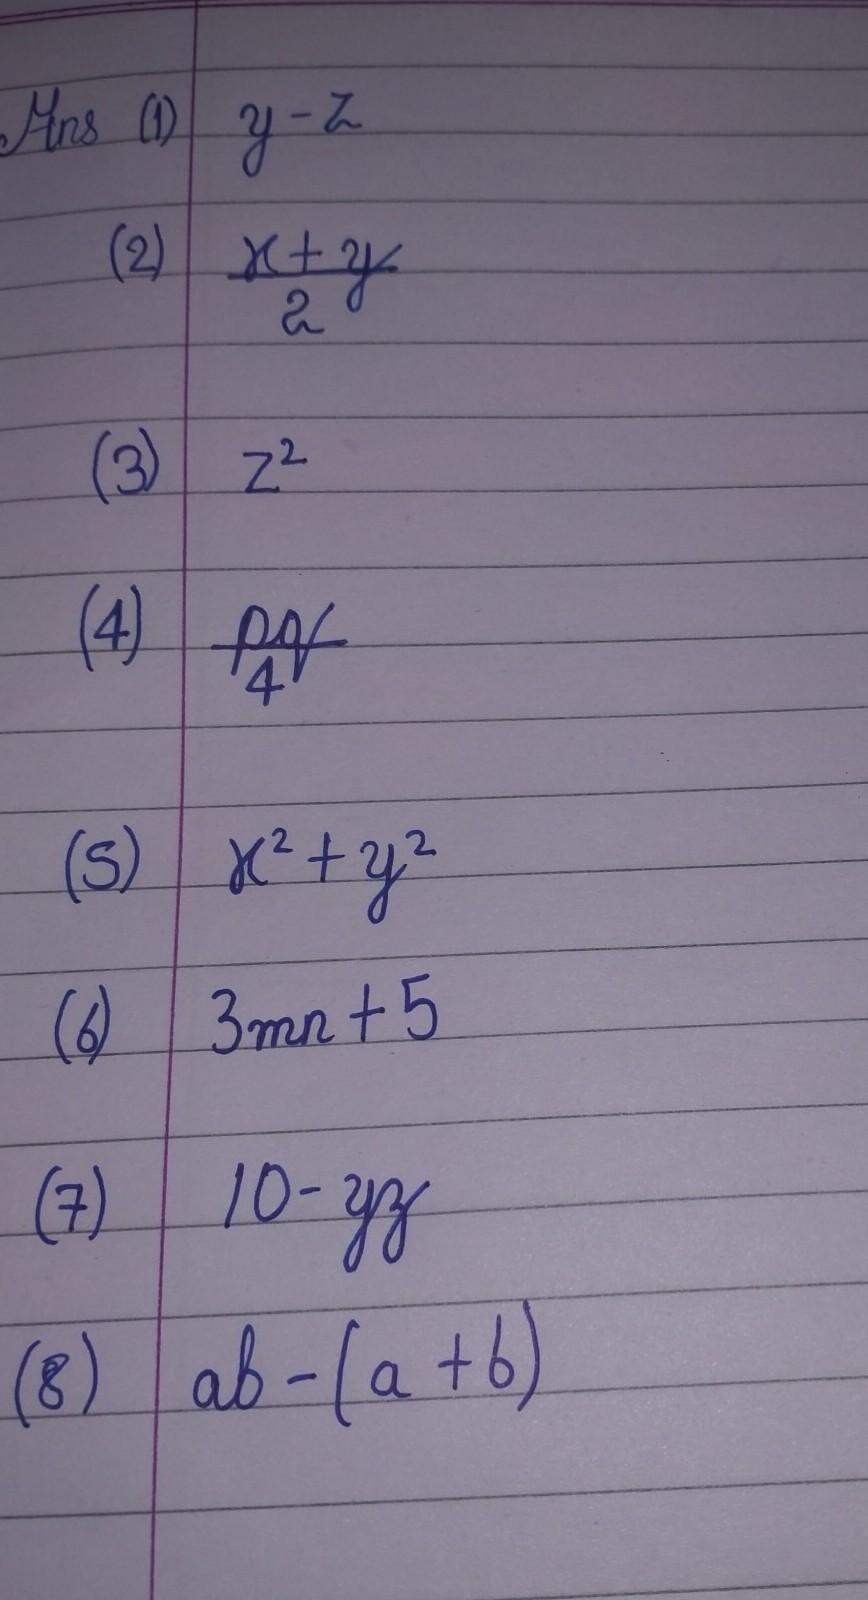 Ans (1) y - z
(2) x + y
2
(3) z²
(4) pq
4
(5) x² + y²
(6) 3mn + 5
(7) 10 - yz
(8) ab - (a + b)